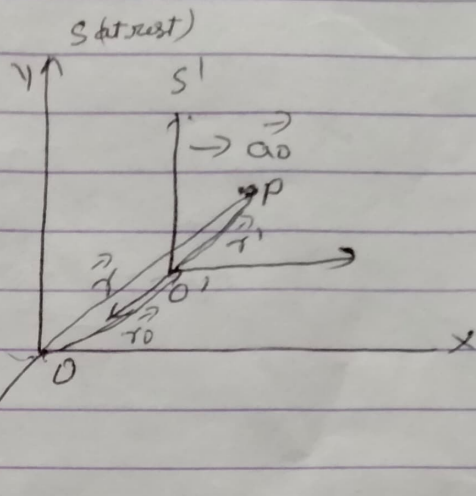 S(at rest)
Y
S'
→ a⃗0
P
r⃗'
r⃗
O'
r⃗0
X
O